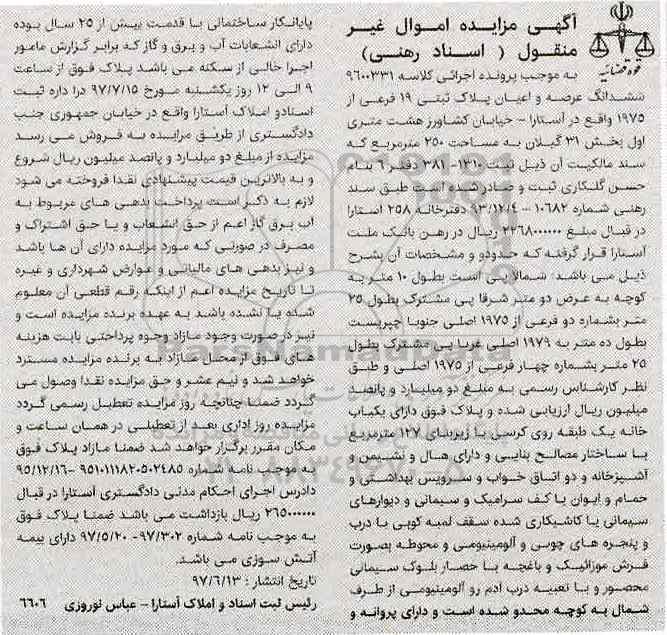 آگهی مزایده اموال غیر
منقول ( اسناد رهنی)
قوه قضائیه
به موجب پرونده اجرائی کلاسه ۹۶۰۰۳۳۱
ششدانگ عرصه و اعیان پلاک ثبتی ۱۹ فرعی از
۱۹۷۵ واقع در آستارا – خیابان کشاورز هشت متری
اول بخش ۳۱ گیلان به مساحت ۲۵۰ مترمربع که
سند مالکیت آن ذیل ثبت ۱۳۱۰- ۳۸۱ دفتر ۹ بنام
حسن گلکاری ثبت و صادر شده است طبق سند
رهنی شماره ۱۰۶۸۲ – ۹۳/۱۲/۴ دفترخانه ۲۵۸ آستارا
در قبال مبلغ ۲۲۶۸۰۰۰۰۰۰ ریال در رهن بانک ملت
آستارا قرار گرفته که حدودو و مشخصات آن بشرح
ذیل می باشد: شمالا پی است بطول ۱۰ متر به
کوچه به عرض دو متر شرقا پی مشترک بطول ۲۵
متر بشماره دو فرعی از ۱۹۷۵ اصلی جنوبا چپریست
بطول ده متر به ۱۹۷۹ اصلی غربا پی مشترک بطول
۲۵ متر بشماره چهار فرعی از ۱۹۷۵ اصلی و طبق
نظر کارشناس رسمی به مبلغ دو میلیارد و پانصد
میلیون ریال ارزیابی شده و پلاک فوق دارای یکباب
خانه یک طبقه روی کرسی با زیربنای ۱۲۷ مترمربع
با ساختار مصالح بنایی و دارای هال و نشیمن و
آشپزخانه و دو اتاق خواب و سرویس بهداشتی و
حمام و ایوان با کف سرامیک و سیمانی و دیوارهای
سیمانی یا کاشیکاری شده سقف لمبه کوبی با درب
و پنجره های چوبی و آلومینیومی و محوطه بصورت
فرش موزائیک و باغچه با حصار بلوک سیمانی
محصور و با تعبیه درب آدم رو آلومینیومی از طرف
شمال به کوچه محدو شده است و دارای پروانه و
پایانکار ساختمانی با قدمت بیش از ۲۵ سال بوده
دارای انشعابات آب و برق و گاز که برابر گزارش مامور
اجرا خالی از سکنه می باشد پلاک فوق از ساعت
۹ الی ۱۲ روز یکشنبه مورخ ۹۷/۷/۱۵ درا داره ثبت
اسنادو املاک آستارا واقع در خیابان جمهوری جنب
دادگستری از طریق مزایده به فروش می رسد
مزایده از مبلغ دو میلیارد و پانصد میلیون ریال شروع
و به بالاترین قیمت پیشنهادی نقدا فروخته می شود
لازم به ذکر است پرداخت بدهی های مربوط به
آب برق گاز اعم از حق انشعاب و یا حق اشتراک و
مصرف در صورتی که مورد مزایده دارای آن ها باشد
و نیز بدهی های مالیاتی و عوارض شهرداری و غیره
تا تاریخ مزایده اعم از اینکه رقم قطعی آن معلوم
شده یا نشده باشد به عهده برنده مزایده است و
نیز در صورت وجود مازاد وجوه پرداختی بابت هزینه
های فوق از محل مازاد به برنده مزایده مسترد
خواهد شد و نیم عشر و حق مزایده نقدا وصول می
گردد ضمنا چنانچه روز مزایده تعطیل رسمی گردد
مزایده روز اداری بعد از تعطیلی در همان ساعت و
مکان مقرر برگزار خواهد شد ضمنا مازاد پلاک فوق
به موجب نامه شماره ۹۵۱۰۱۱۱۸۲۰۵۰۲۴۸۵ –۹۵/۱۲/۱۶
دادرس اجرای احکام مدنی دادگستری آستارا در قبال
۲۶۵۰۰۰۰۰۰ ریال بازداشت می باشد ضمنا پلاک فوق
به موجب نامه شماره ۹۷/۳۰۲- ۹۷/۵/۲۰ دارای بیمه
آتش سوزی می باشد.
تاریخ انتشار : ۹۷/۶/۱۳
رئیس ثبت اسناد و املاک آستارا – عباس نوروزی ۶۶۰۶